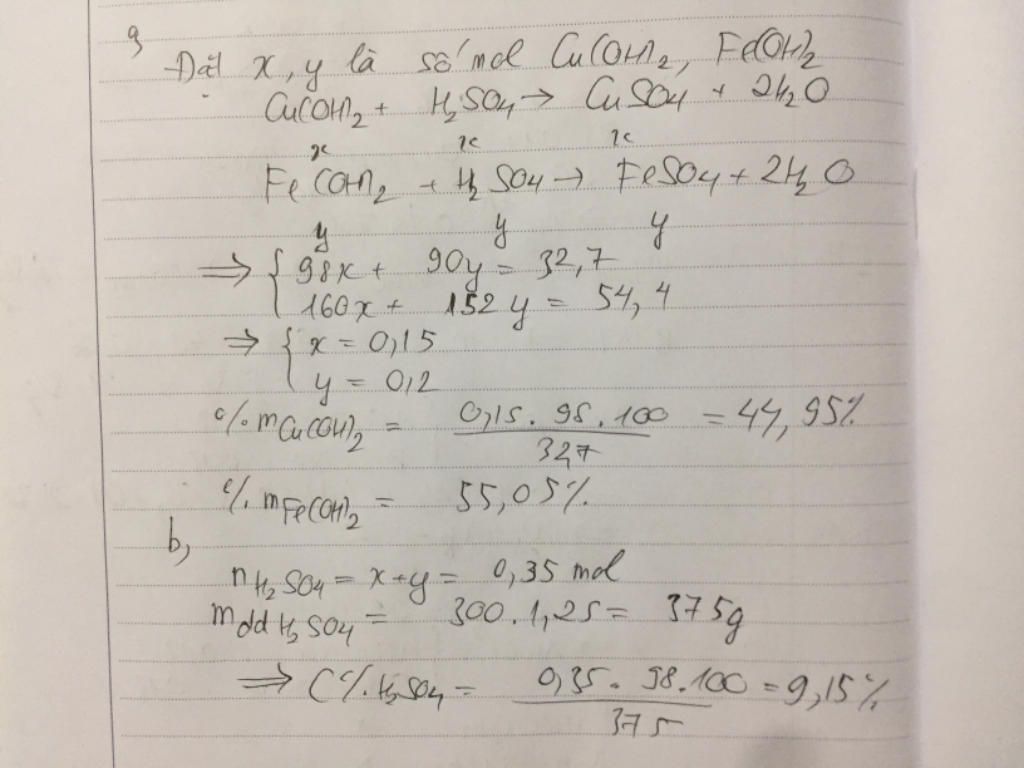 a,
Đặt x, y là số mol Cu(OH)2, Fe(OH)2
Cu(OH)2 + H2SO4 → CuSO4 + 2H2O
x x x
Fe(OH)2 + H2SO4 → FeSO4 + 2H2O
y y y
⇒ { 98x + 90y = 32,7
160x + 152y = 54,4
⇒ { x = 0,15
y = 0,2
% mCu(OH)2 = 0,15 . 98 . 100 / 32,7 = 44,95%
% mFe(OH)2 = 55,05%
b,
nH2SO4 = x+y = 0,35 mol
mdd H2SO4 = 300 . 1,25 = 375g
⇒ C%H2SO4 = 0,35 . 98 . 100 / 375 = 9,15%